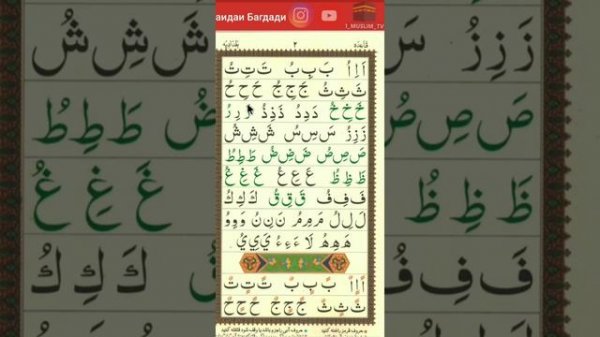 аидаи Багдади
1_MUSLIM_TV
٢
اَ اِ اُ بَ بِ بُ تَ تِ تُ
ثَ ثِ ثُ جَ جِ جُ حَ حِ حُ
خَ خِ خُ دَ دِ دُ ذَ ذِ ذُ رَ رِ رُ
زَ زِ زُ سَ سِ سُ شَ شِ شُ
صَ صِ صُ ضَ ضِ ضُ طَ طِ طُ
ظَ ظِ ظُ عَ عِ عُ غَ غِ غُ
فَ فِ فُ قَ قِ قُ كَ كِ كُ
لَ لِ لُ مَ مِ مُ نَ نِ نُ وَ وِ وُ
هَ هِ هُ لَا ءَ ءِ ءُ يَ يِ يُ
اً اٍ اٌ بً بٍ بٌ تً تٍ تٌ
ثً ثٍ ثٌ جً جٍ جٌ حً حٍ حٌ